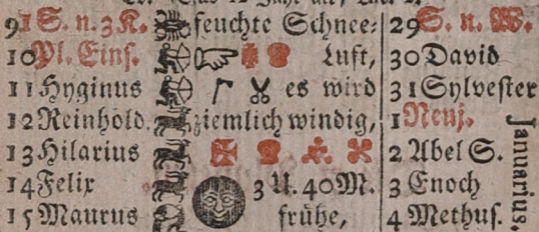 9 1 S. n. 3 K. feuchte Schnee- 29 S. n. W.
10 Pl. Einſ. Luft, 30 David
11 Hyginus es wird 31 Sylveſter
12 Reinhold. ziemlich windig, 1 Neuj.
13 Hilarius 2 Abel S.
14 Felix 3 U. 40 M. 3 Enoch
15 Maurus frühe, 4 Methuſ.
Januarius.